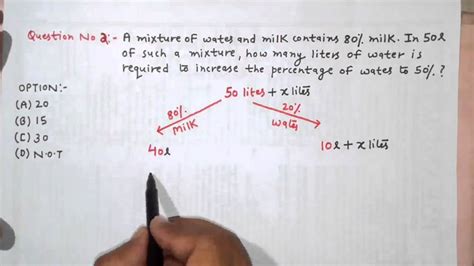 Question No 2:- A mixture of water and milk contains 80% milk. In 50l
of such a mixture, how many liters of water is
required to increase the percentage of water to 50%.?
OPTION:-
(A) 20
(B) 15
(C) 30
(D) N.O.T
50 lites + x lites
80%
milk
20%
water
40l
10l + x lites